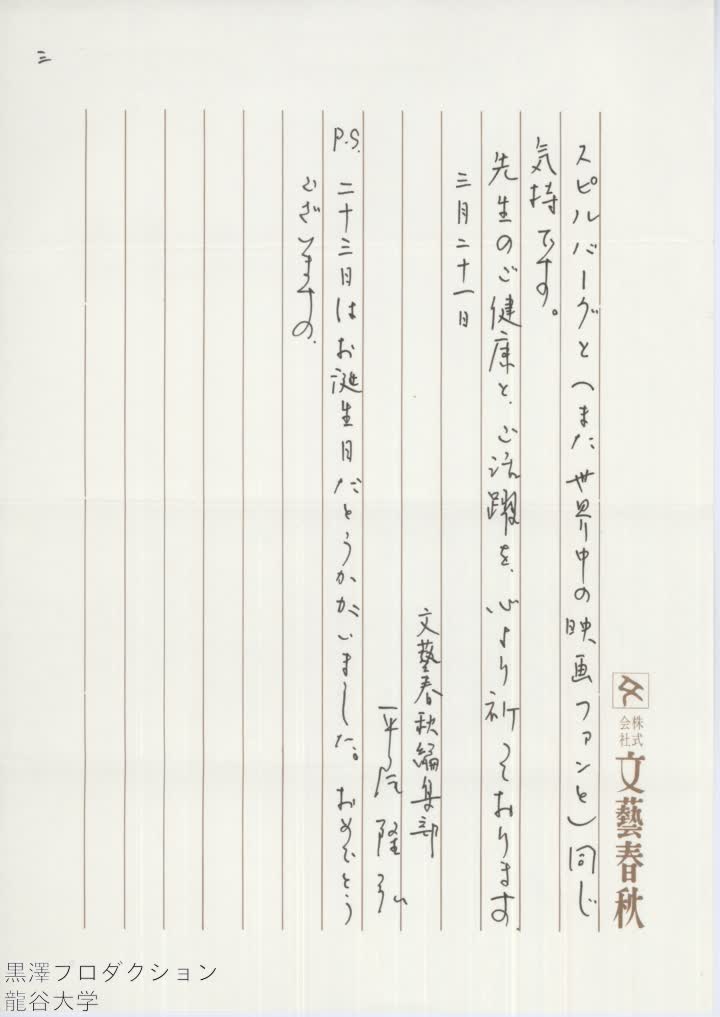 三
スピルバーグと(また世界中の映画ファンと)同じ
気持です。
先生のご健康と、ご活躍を、心より祈っております
三月二十一日
文藝春秋編集部
平尾隆弘
P.S. 二十三日はお誕生日だとうかがいました。おめでとう
ございます。
株式会社 文藝春秋
黒澤プロダクション
龍谷大学